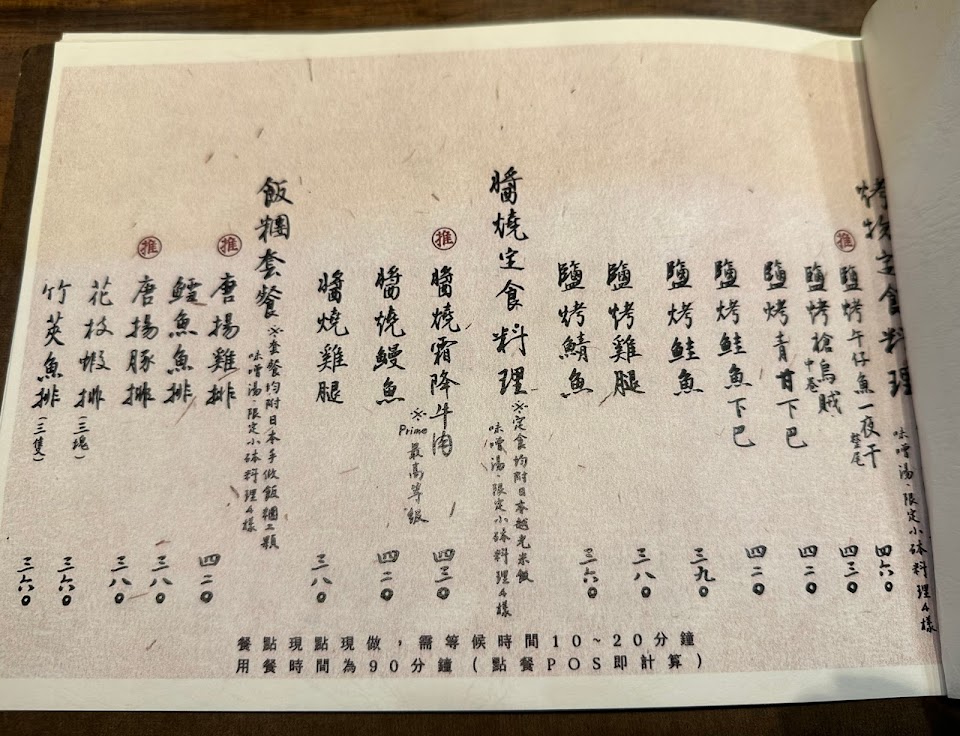 烤物定食料理
味噌湯·限定小砵料理4樣
推
鹽烤午仔魚一夜干
整尾
四六0
鹽烤槍烏賊
中卷
四三0
鹽烤青甘下巴
四二0
鹽烤鮭魚下巴
四二0
鹽烤鮭魚
三九0
鹽烤雞腿
三八0
鹽烤鯖魚
三六0
醬燒定食料理
※定食均附日本越光米飯
味噌湯·限定小砵料理4樣
推
醬燒霜降牛肉
※Prime最高等級
四三0
醬燒鰻魚
四二0
醬燒雞腿
三八0
飯糰套餐
※套餐均附日本手做飯糰二顆
味噌湯·限定小砵料理4樣
推
唐揚雞排
四二0
鱈魚魚排
三八0
推
唐揚豚排
三八0
花枝蝦排
(三塊)
三六0
竹莢魚排
(三隻)
三六0
餐點現點現做，需等候時間10~20分鐘
用餐時間為90分鐘(點餐POS即計算)